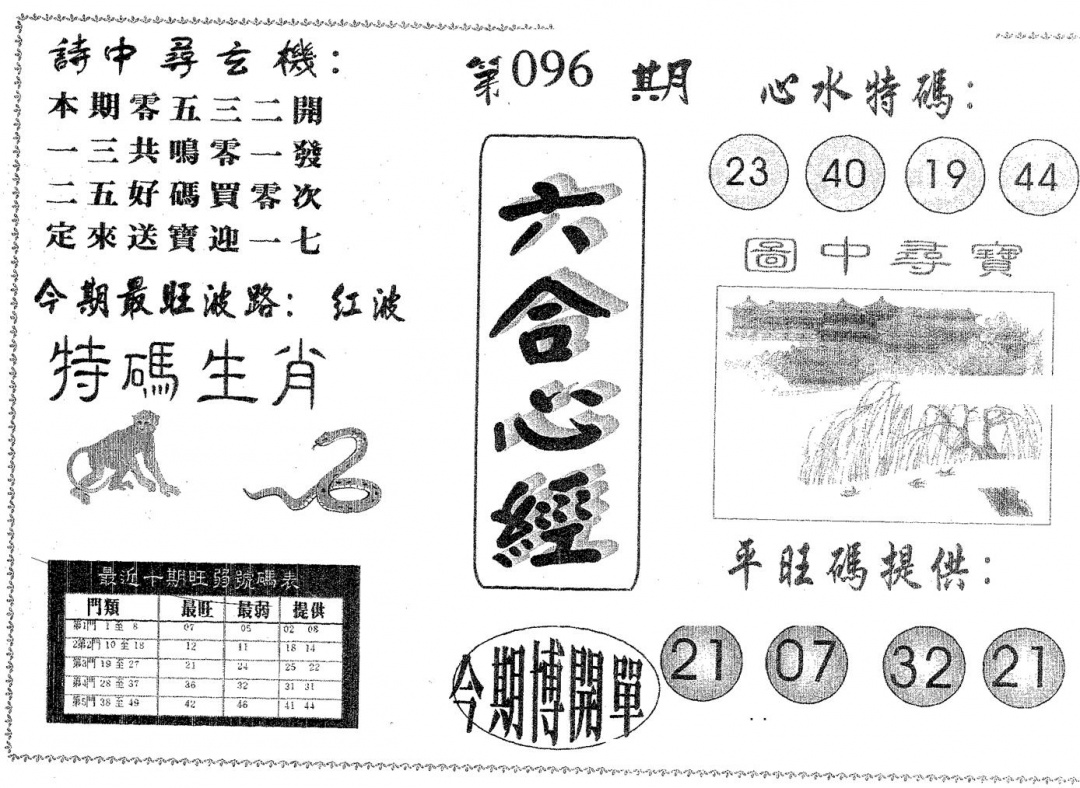 詩中尋玄機：
本期零五三二開
一三共鳴零一發
二五好碼買零次
定來送寶迎一七
今期最旺波路：红波
特碼生肖
最近十期旺弱號碼表
門類 最旺 最弱 提供
第1門 1 至 8 07 05 02 08
第2門 10 至 18 12 11 18 14
第3門 19 至 27 21 24 25 22
第4門 28 至 37 36 32 31 31
第5門 38 至 49 42 46 41 44
第096期
六合心經
今期博開單
心水特碼：
23 40 19 44
圖中尋寶
平旺碼提供：
21 07 32 21